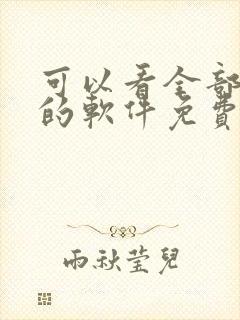 可以看全部
的軟件免費
雨秋莹兒